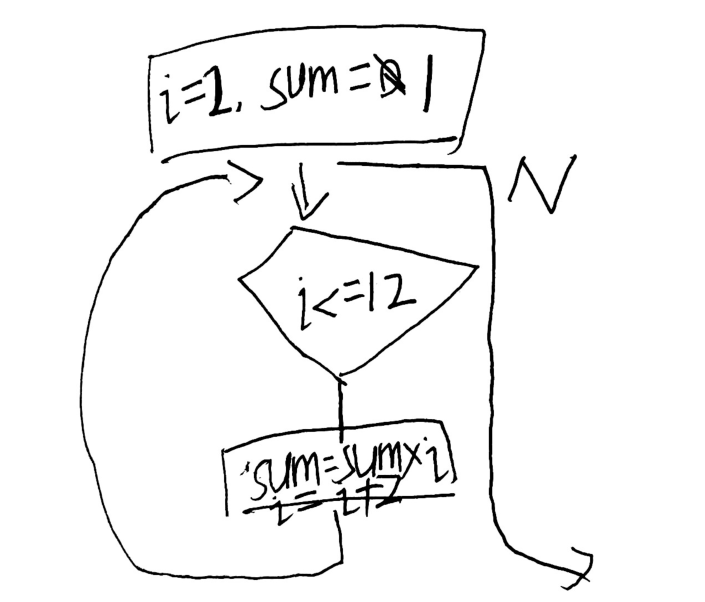 i=2, sum=1
N
i<=12
sum=sum×i
i=i+2